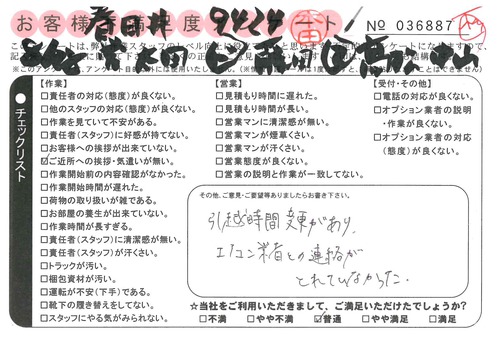 お客様満足度アンケート
No 036887
春日井 9424
チェックリスト
【作業】
□責任者の対応(態度)が良くない。
□他のスタッフの対応(態度)が良くない。
□作業を見ていて不安がある。
□責任者(スタッフ)に好感が持てない。
□お客様への挨拶が出来ていない。
☑ご近所への挨拶・気遣いが無い。
□作業開始前の内容確認がなかった。
□作業開始時間が遅れた。
□荷物の取り扱いが雑である。
□お部屋の養生が出来ていない。
□作業時間が長すぎる。
□責任者(スタッフ)に清潔感が無い。
□責任者(スタッフ)が汗くさい。
□トラックが汚い。
□梱包資材が汚い。
□運転が不安(下手)である。
□靴下の履き替えをしてない。
□スタッフにやる気がみられない。
【営業】
□見積もり時間に遅れた。
□見積もり時間が長い。
□営業マンに清潔感が無い。
□営業マンが煙草くさい。
□営業マンが汗くさい。
□営業態度が良くない。
□営業の説明と作業が一致してない。
【受付・その他】
□電話の対応が良くない。
□オプション業者の説明
・作業が良くない。
□オプション業者の対応
(態度)が良くない。
その他、ご意見・ご要望等ありましたらお書き下さい。
引越時間変更があり、
エアコン業者との連絡が
とれていなかった.
☆当社をご利用いただきまして、ご満足いただけたでしょうか?
□不満 □やや不満 ☑普通 □やや満足 □満足